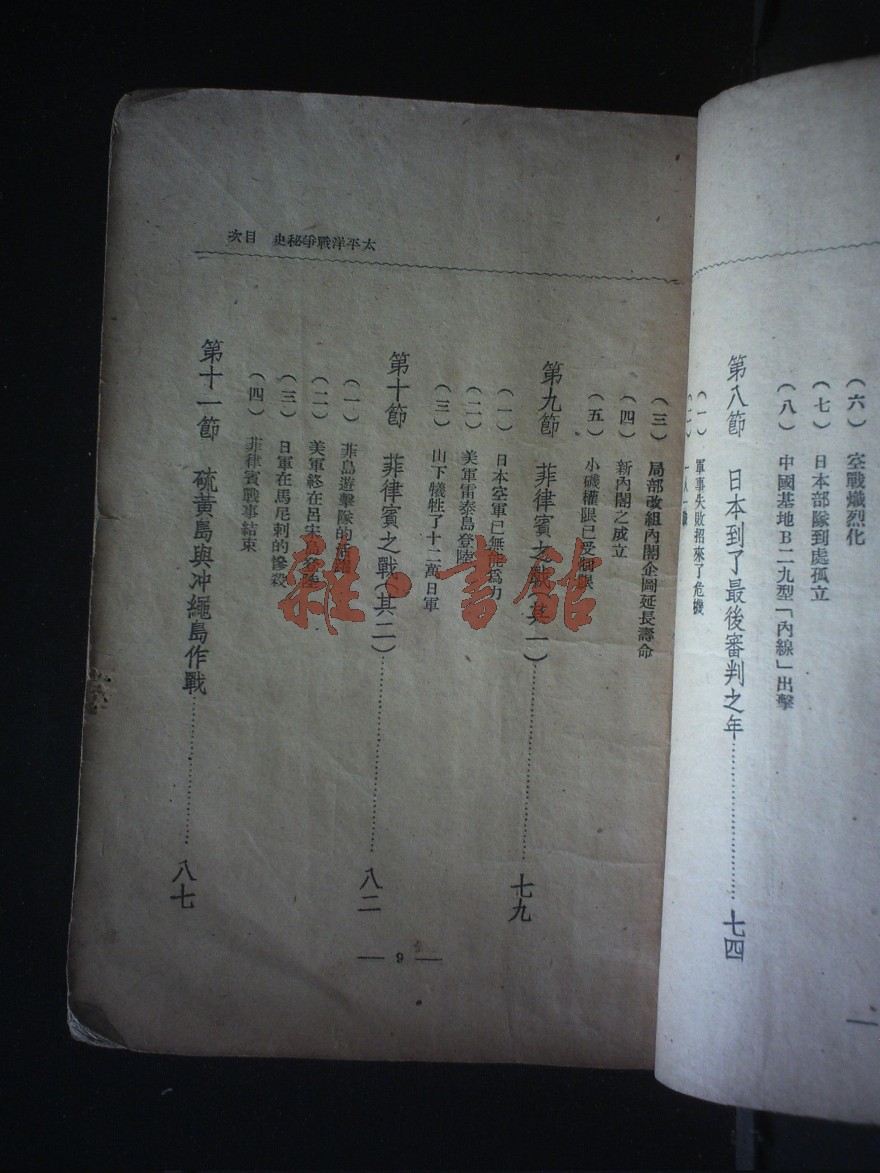 （六）　空戰熾烈化
（七）　日本部隊到處孤立
（八）　中國基地B二九型「內線」出擊
第八節　日本到了最後審判之年…………七四
（一）　軍事失敗招來了危機
太平洋戰爭秘史　目次
（三）　局部改組內閣企圖延長壽命
（四）　新內閣之成立
（五）　小磯權限已受
第九節　菲律賓之戰（其一）…………七九
（一）　日本空軍已無能為力
（二）　美軍雷泰島登陸
（三）　山下犧牲了十二萬日軍
第十節　菲律賓之戰（其二）…………八二
（一）　菲島遊擊隊的活
（二）　美軍終在呂宋島
（三）　日軍在馬尼剌的慘殺
（四）　菲律賓戰事結束
第十一節　硫黃島與冲繩島作戰…………八七
— 9 —
雜·書館